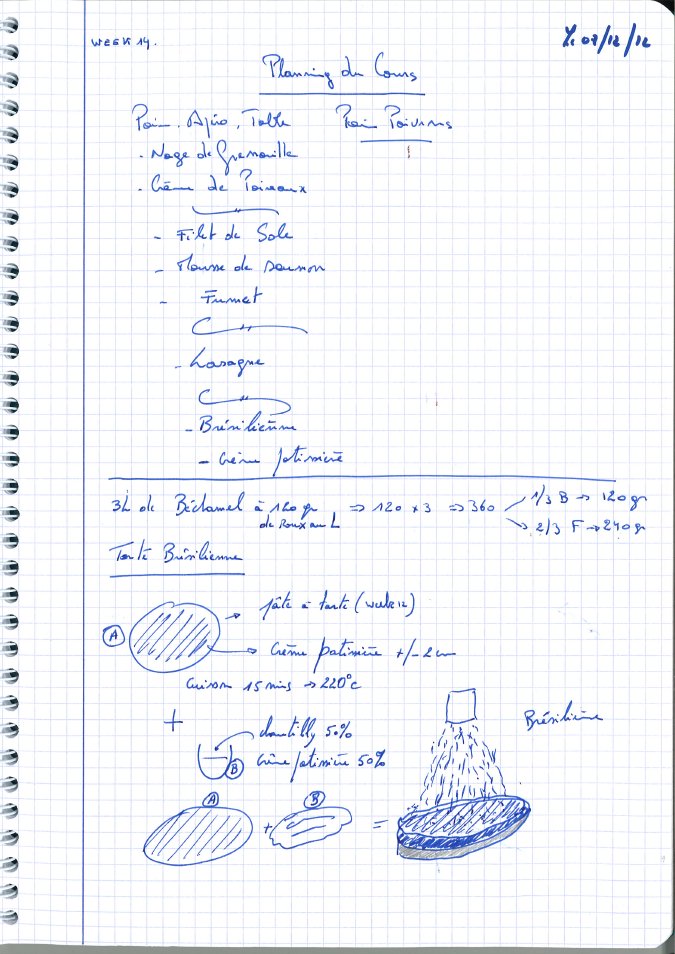 WEEK 14.
07/12/12
Planning du Cours
Pain, Apéro, Table Pain Poivrons
. Nage de Grenouille
. Crème de Poireaux
- Filet de Sole
- Mousse de saumon
- Fumet
- Lasagne
- Brésilienne
- Crème patissière
3L de Béchamel à 120 gr => 120 x 3 => 360
de Roux au L
1/3 B -> 120 gr
2/3 F -> 240 gr
Tarte Brésilienne
A
-> pâte à tarte (week 12)
-> Crème patissière +/- 2 cm
Cuisson 15 mins -> 220°c
+
chantilly 50%
B Crème patissière 50%
Brésilienne
A + B =